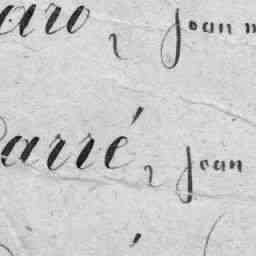 aro, Joan
arré, Jean